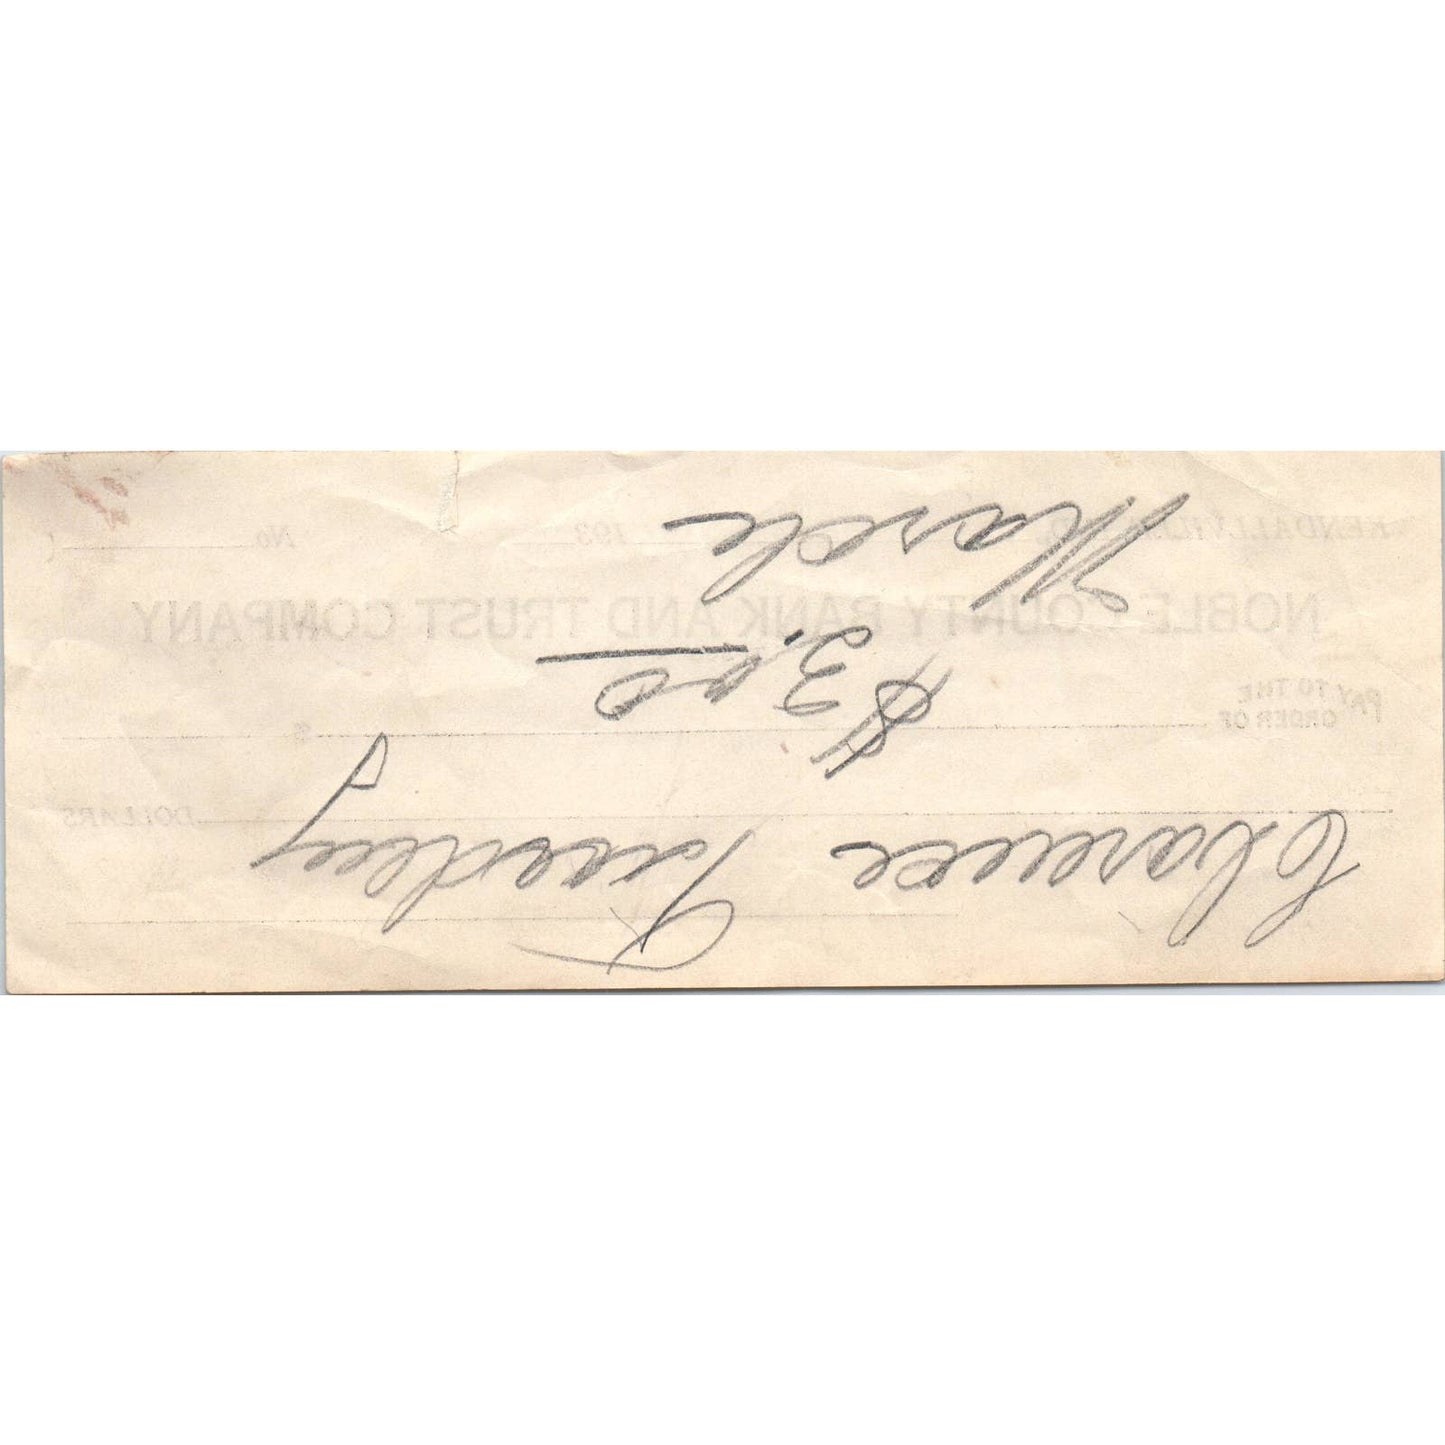 Clarence
$3.00
KENDALLVILLE, 193 No.
NOBLE COUNTY BANK AND TRUST COMPANY
PAY TO THE
ORDER OF $
DOLLARS